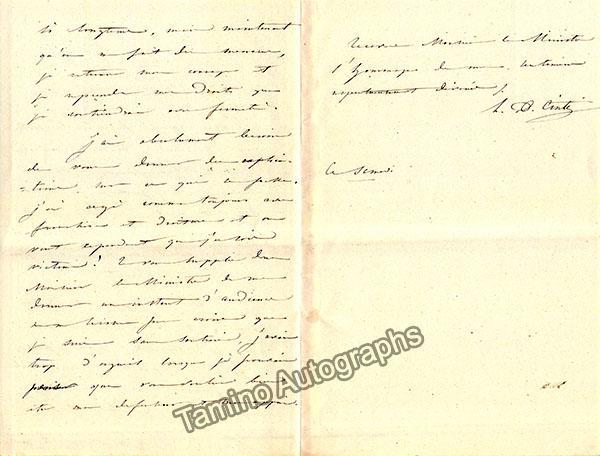 si longtems, mais maintenant
qu'on a fait des
je retrouve mon courage et
je reprendrai mes droits que
je soutiendrai avec fermeté.
J'ai absolument besoin
de vous donner des explica-
tions sur ce qui se passe.
j'ai agi comme toujours avec
franchise et droiture et on
veut cependant que j'en sois
victime! Je vous supplie donc
Monsieur le Ministre de me
donner un instant d'audience
ne me laissez pas croire que
je suis sans soutien, j'avais
trop d'orgueil lorsque je pouvais
penser que vous vouliez bien
être mon défenseur et mon appui.
recevez Monsieur le Ministre
l'hommage de mes sentimens
respectueusement dévoués
L. D. Cinti
Ce Samedi
Tamino Autographs